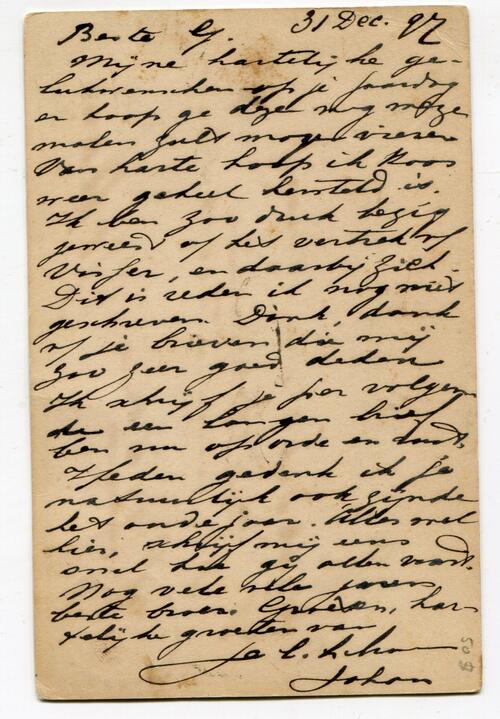 Beste G. 31 Dec. 97
Mijne hartelijke ge-
lukwenschen op je jaardag
en hoop ge deze nog
malen zult mogen vieren
Van harte hoop ik Koos
weer geheel hersteld is.
Ik ben zoo druk bezig
geweest of het vertrek of
Visser, en daarbij ziek.
Dit is reden ik nog niet
geschreven. Dank, dank
of je brieven die mij
zoo zeer goed deden
Ik schrijf je per volgen
de een langen brief
ben nu op orde en
Heden gedenk ik je
natuurlijk ook zijnde
het oude jaar. Alles wel
hier, schrijf mij eens
snel hoe gij allen vaart.
Nog vele vele jaren
beste broer. Groeten, har-
telijke groeten van
Johan